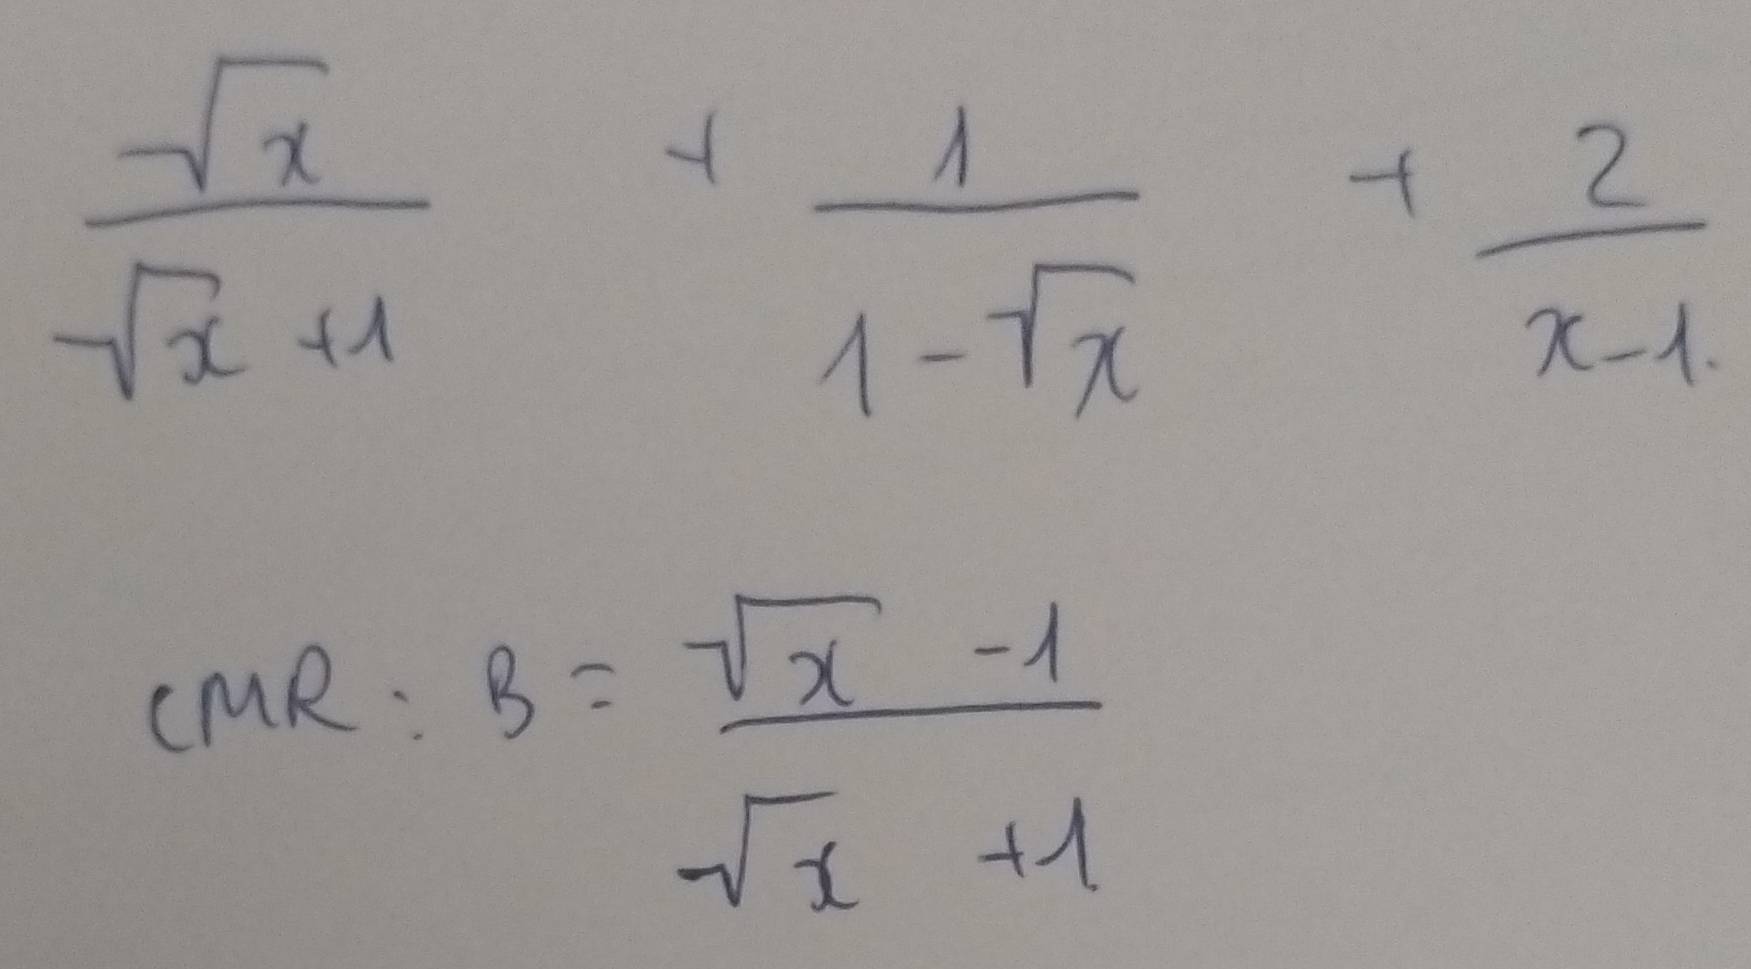 √x/(√x +1) + 1/(1-√x) + 2/(x-1.)
CMR: B = (√x -1)/(√x +1)